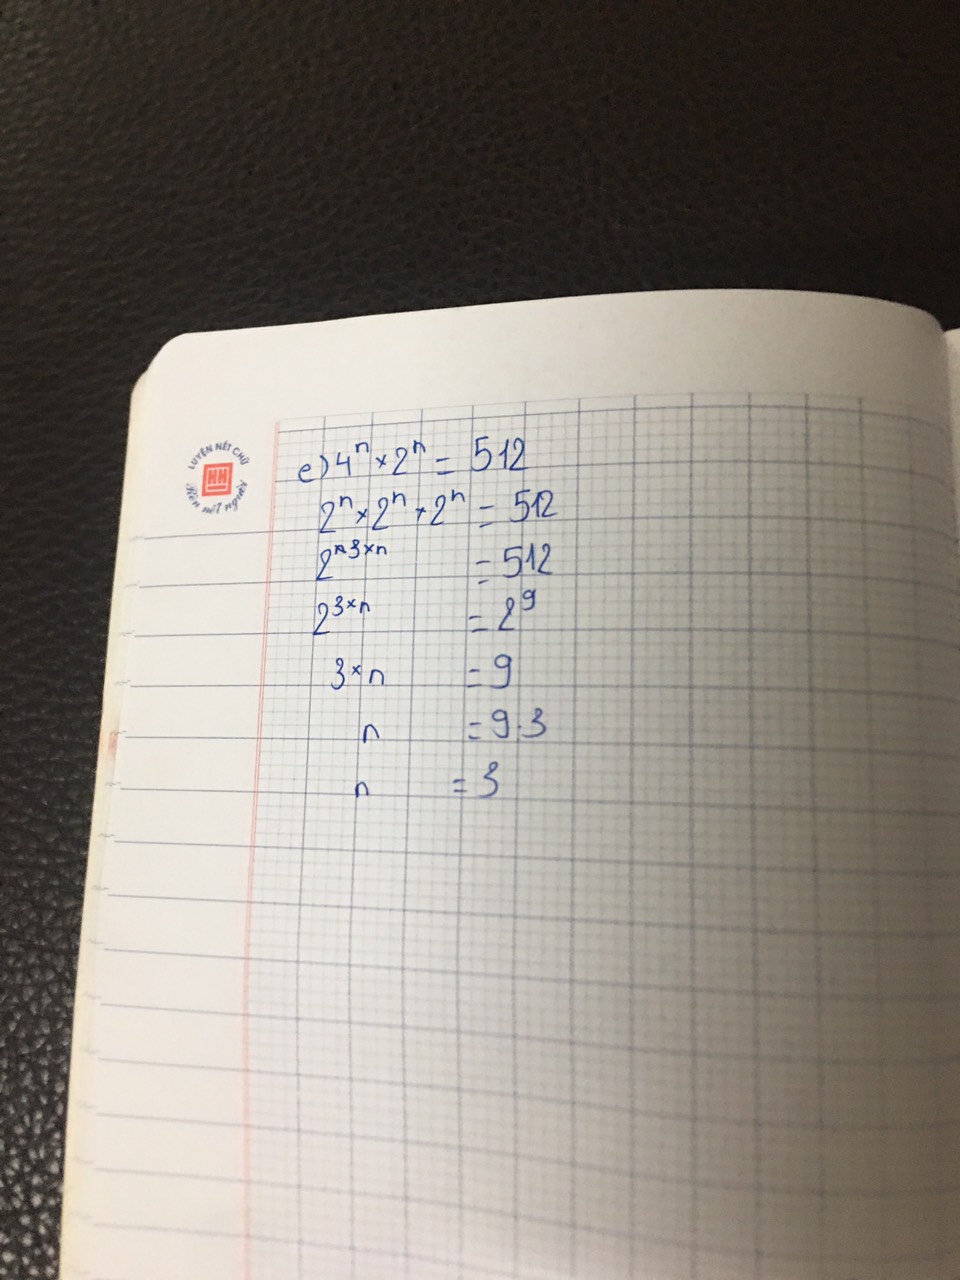 LUYỆN NÉT CHỮ
HH
Rèn nết người
e) 4ⁿ × 2ⁿ = 512
2ⁿ × 2ⁿ × 2ⁿ = 512
2³ˣⁿ = 512
2³ˣⁿ = 2⁹
3 × n = 9
n = 9:3
n = 3